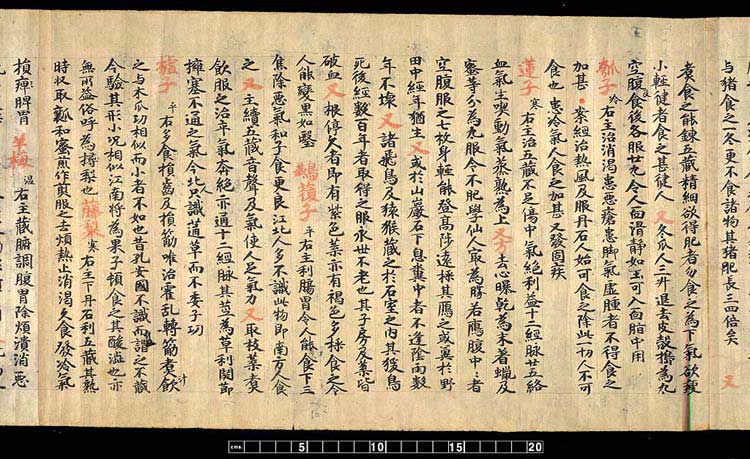 与猪食之一冬更不食諸物其猪肥長三四倍矣 又
煮食之能鍊五蔵精細欲得肥者勿食之為下氣欲瘦
小輕健者食之甚健人 又冬瓜人三升退去皮殼擣為丸
空腹及食後各服廿丸令人面滑静如玉可入面脂中用
瓠子冷 右主治消渴患惡瘡患脚氣虚腫者不得食之
加甚 案經治熱風及服丹石人始可食之除此一切人不可
食也患冷氣人食之加甚又發固疾
蓮子寒 右主治五蔵不足傷中氣絶利益十二經脉廿五絡
血氣生喫動氣蒸熟為上 又方去心曝乾為末著蠟及
蜜等分為丸服令不肥學仙人取為勝若鴈腹中者
空腹服之七枚身輕能登高陟遠採其鴈之或糞於野
田中經年猶生 又或於山巖石下息糞中者不逢陰雨數
年不壞 又諸飛鳥及猿猴蔵之於石室之内其猨鳥
死後經數百年者取得之服永世不老也其子房及葉皆
破血 又根停久者即有紫色葉亦有褐色多採食之令
人能變黑如瑿 鷰覆子平 右主利腸胃令人能食下三
焦除惡氣和子食更良江北人多不識此物即南方人食
之 又主續五蔵音聲及氣使人足氣力 又取枝葉煮
飲服之治卒氣奔絶亦通十二經脉其莖為草利關節
擁塞不通之氣今北人只識通草而不委子功
樝子平 右多食損齒及損筋唯治霍乱轉筋煮汁飲
之与木瓜功相似而小者不如也昔孔安國不識而謂之不蔵
今驗其形小况相似江南將為果子頓食之其酸澁也亦
無所益俗呼為樗梨也 藤梨寒 右主下丹石利五蔵其熟
時收取瓤和蜜煎作煎服之去煩熱止消渴久食發冷氣
損瘴脾胃 羊梅温 右主蔵腑調腹胃除煩潰消惡